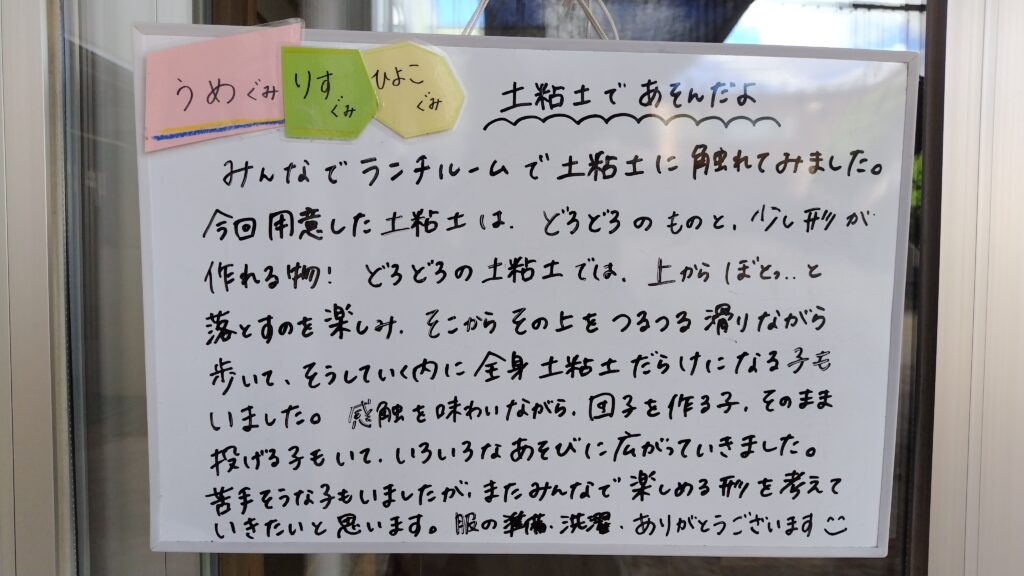 うめぐみ
りすぐみ
ひよこぐみ
土粘土であそんだよ
みんなでランチルームで土粘土に触れてみました。
今回用意した土粘土は、どろどろのものと、少し形が
作れる物! どろどろの土粘土では、上からぼとっ..と
落とすのを楽しみ、そこからその上をつるつる滑りながら
歩いて、そうしていく内に全身土粘土だらけになる子も
いました。感触を味わいながら、団子を作る子、そのまま
投げる子もいて、いろいろなあそびに広がっていきました。
苦手そうな子もいましたが、またみんなで楽しめる形を考えて
いきたいと思います。服の準備、洗濯、ありがとうございます